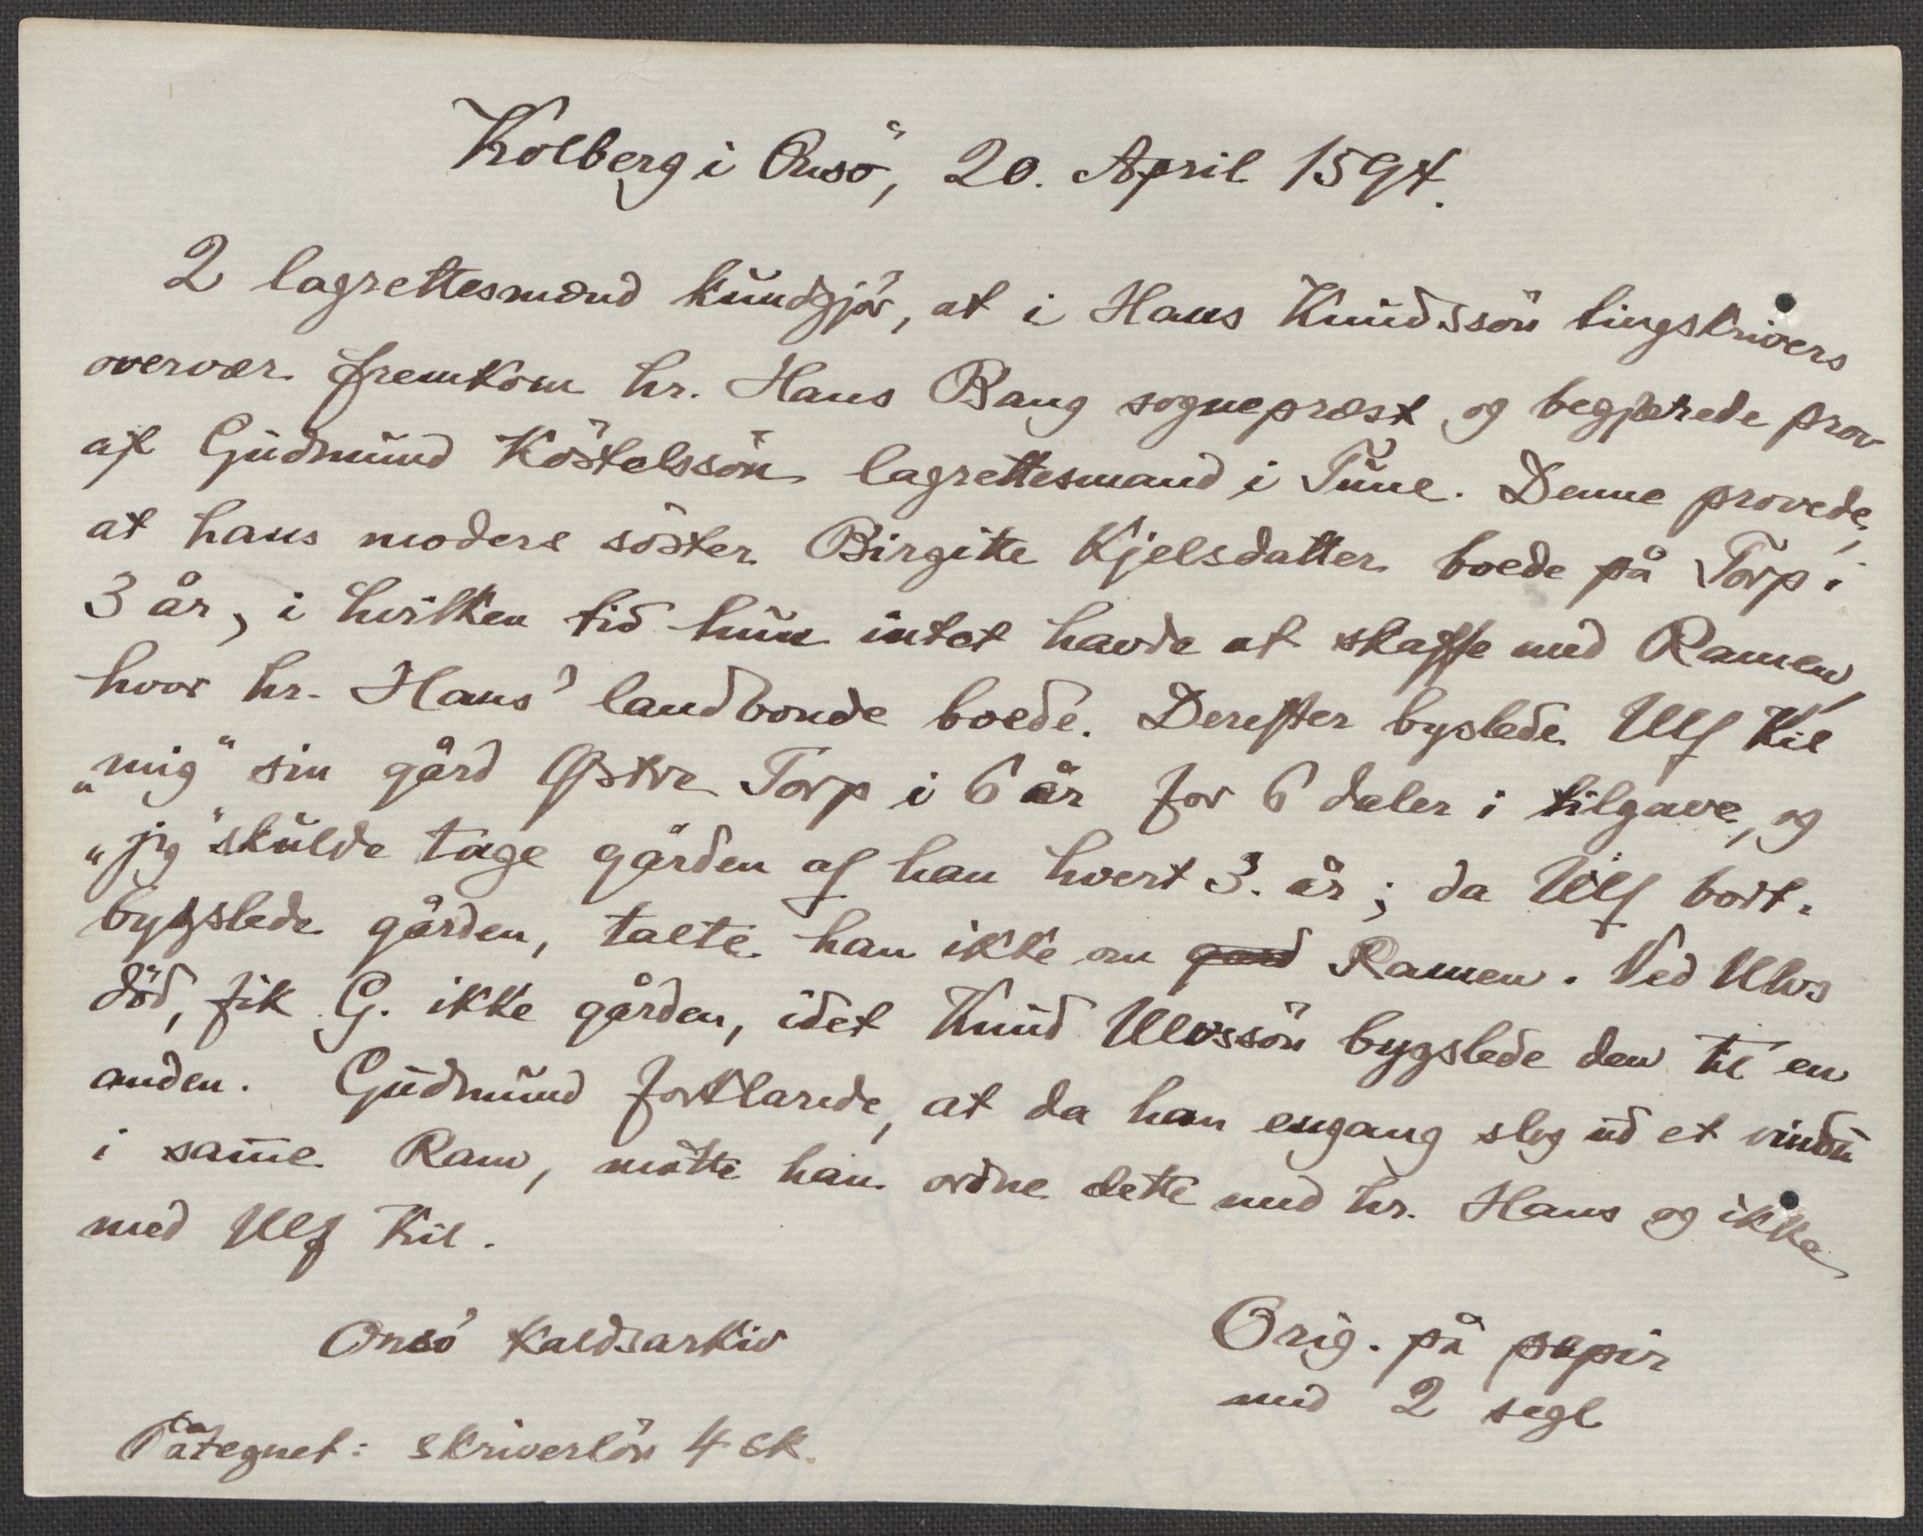 Kolberg i Onsö, 20. April 1594.
2 lagrettesmænd kundgjör, at i Hans Knudssön tingskrivers
overvær fremkom hr. Hans Bang sogneprest og begjærede prov
af Gudmund Köstelssön lagrettesmand i Tune. Denne provede,
at hans moders söster Birgitte Kjelsdatter boede på Torp i
3 år, i hvilken tid hun intet havde at skaffe med Ramen,
hvor hr. Hans' landbonde boede. Derefter byslede Ulf Kil
„mig“ sin gård Østre Torp i 6 år for 6 daler i tilgave, og
„jeg“ skulde tage gården af han hvert 3. år; da Ulf bort-
bygslede gården, talte han ikke om gård Ramen. Ved Ulvs
död, fik G. ikke gården, idet Knud Ulvssön bygslede den til en
anden. Gudmund forklarede, at da han engang slog ud et vindu
i samme Ram, måtte han ordne dette med hr. Hans og ikke
med Ulf Kil.
Onsö kaldsarkiv
Orig. på papir
med 2 segl
Påtegnet: skriverlön 4 sk.